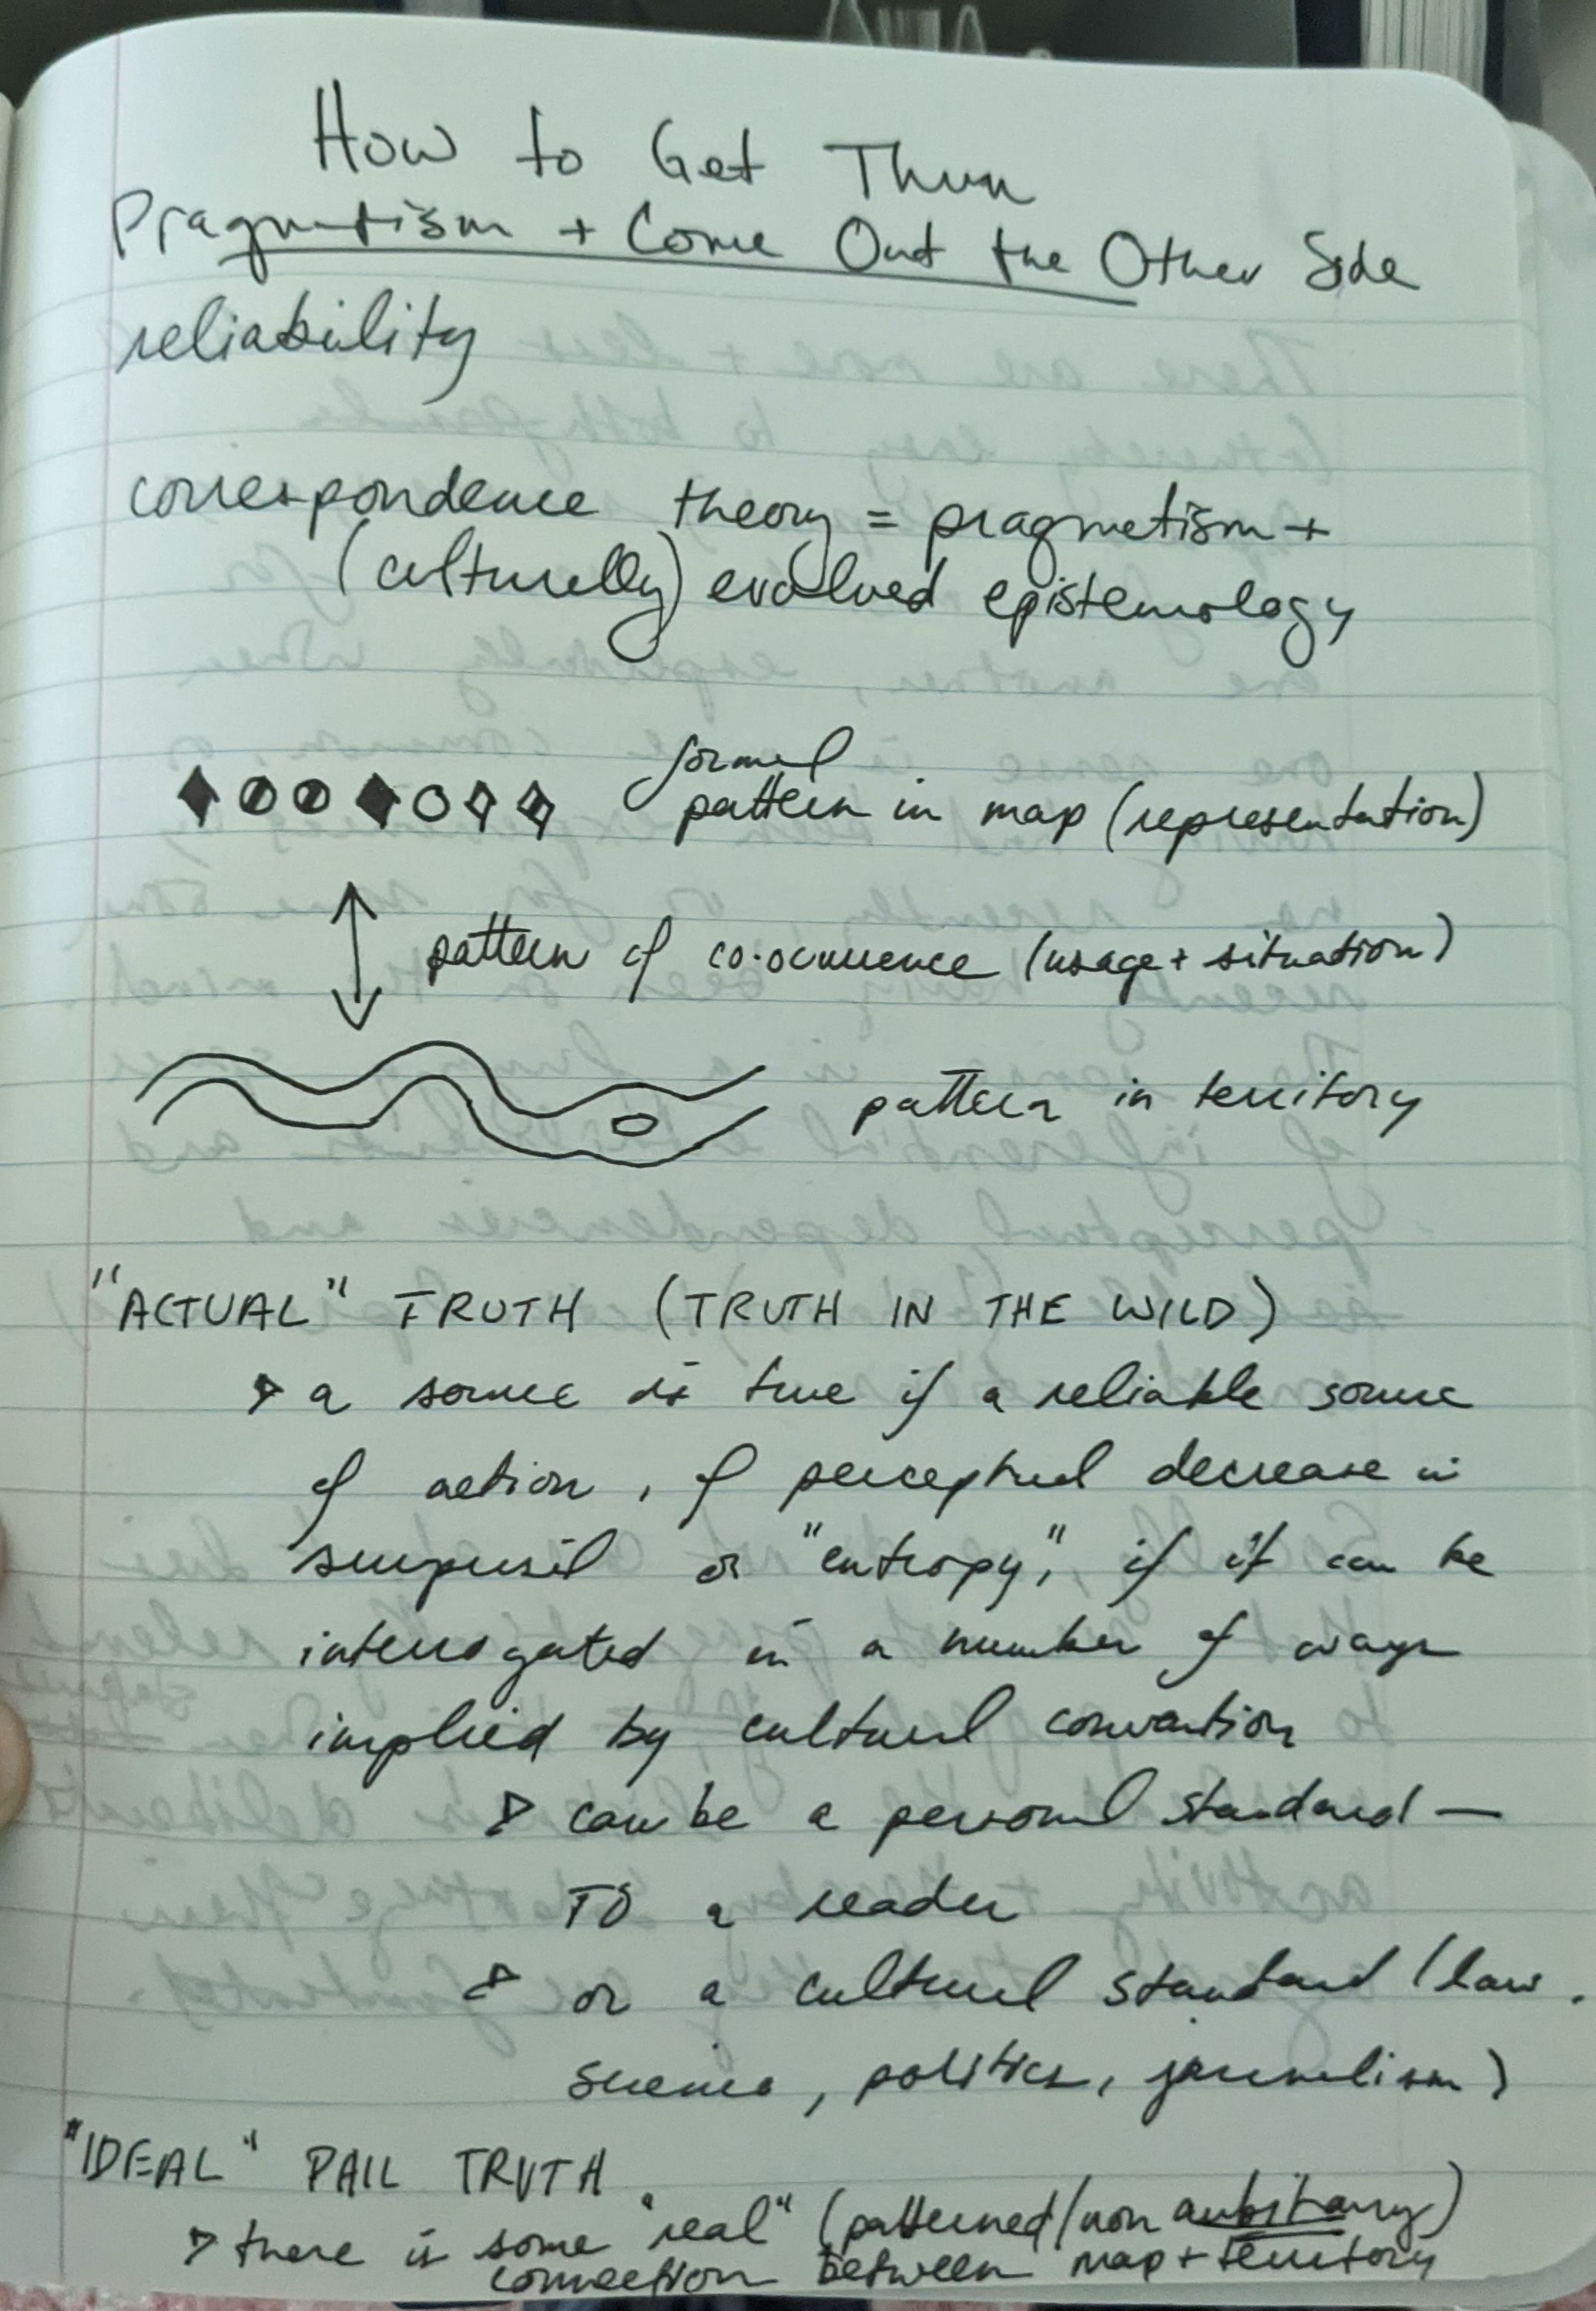 How to Get Thru
Pragmatism + Come Out the Other Side
reliability
correspondence theory = pragmatism +
(culturally) evolved epistemology
formal
pattern in map (representation)
pattern of co-occurrence (usage + situation)
pattern in territory
"ACTUAL" TRUTH (TRUTH IN THE WILD)
a source is true if a reliable source
of action, of perceptual decrease in
surprisal or "entropy", if it can be
interrogated in a number of ways
implied by cultural convention
can be a personal standard —
TO a reader
or a cultural standard (law,
science, politics, journalism)
"IDEAL" TRUTH
there is some "real" (patterned/non arbitrary)
connection between map + territory